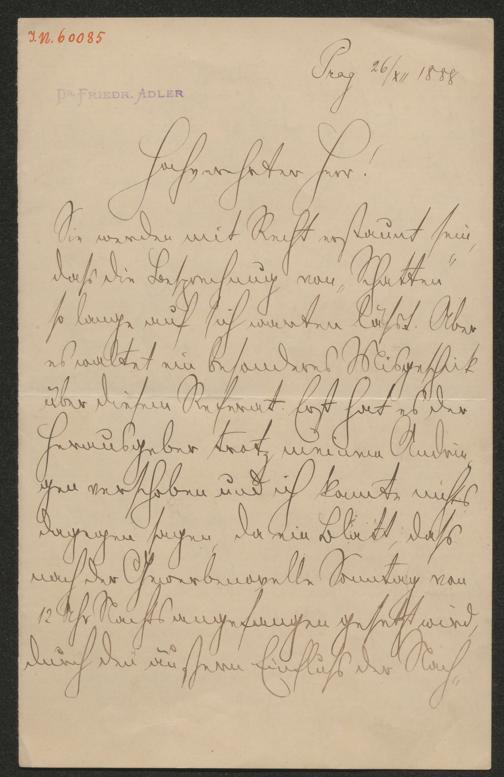 I.N. 60085
Prag 26/XII 1888
Dr. FRIEDR. ADLER
Hochverehrter Herr!
Sie werden mit Recht erstaunt sein,
dass die Besprechung von „Schatten“
so lange auf sich warten lässt. Aber
es waltet ein besonderes Misgeschik
über diesem Referat. Erst hat es der
Herausgeber trotz meinem Andrin
gen verschoben und ich konnte nichts
dagegen sagen, da ein Blatt, dass
nach der Gewerbenovelle Sonntag von
12 Uhr Nachts angefangen gesetzt wird,
durch den äussern Einfluss der Nach„